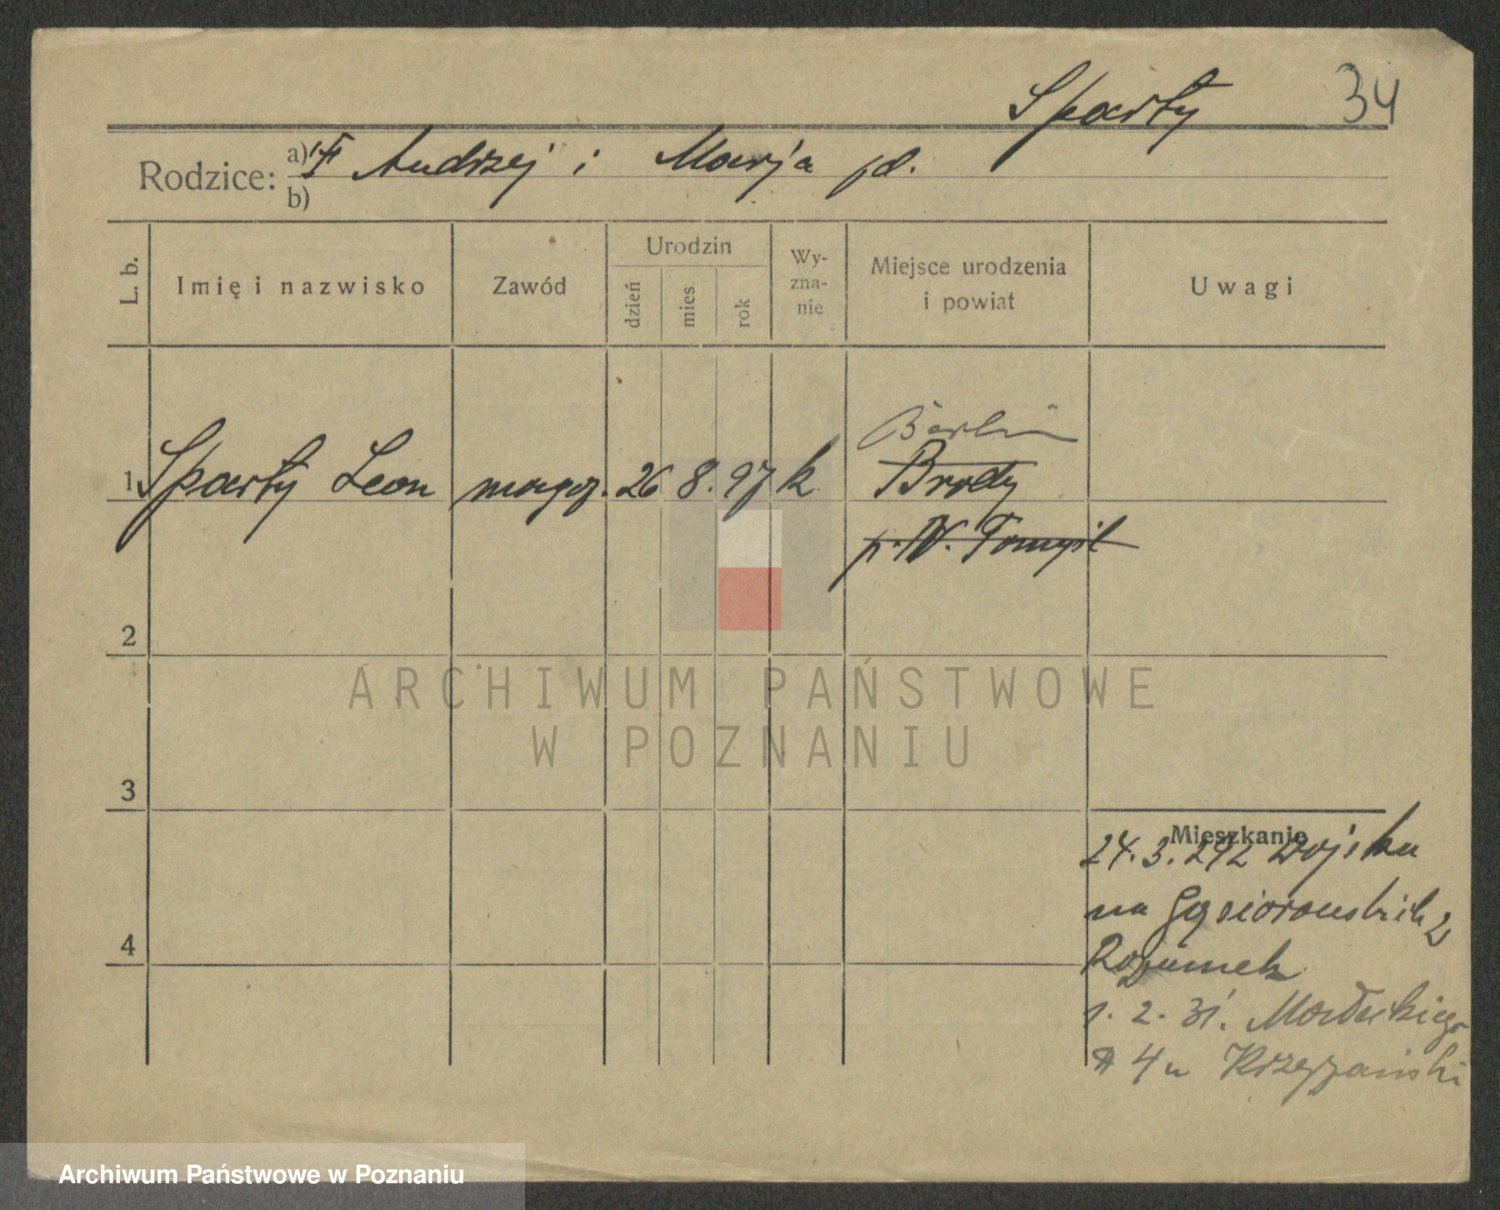 Sparty 34
Rodzice: a) Andrzej i Marja
b)
L. b. Imię i nazwisko Zawód Urodzin dzień mies. rok Wyznanie Miejsce urodzenia i powiat Uwagi
Berlin
1 Sparty Leon magaz. 26 8. 97 k Brody
p. N. Tomyśl
2
ARCHIWUM PAŃSTWOWE
W POZNANIU
3
Mieszkanie
24. 3. z wojska
na Gąsiorowskich 2
Rozumek
1. 2. 31.
4 u Krzyżański
4
Archiwum Państwowe w Poznaniu